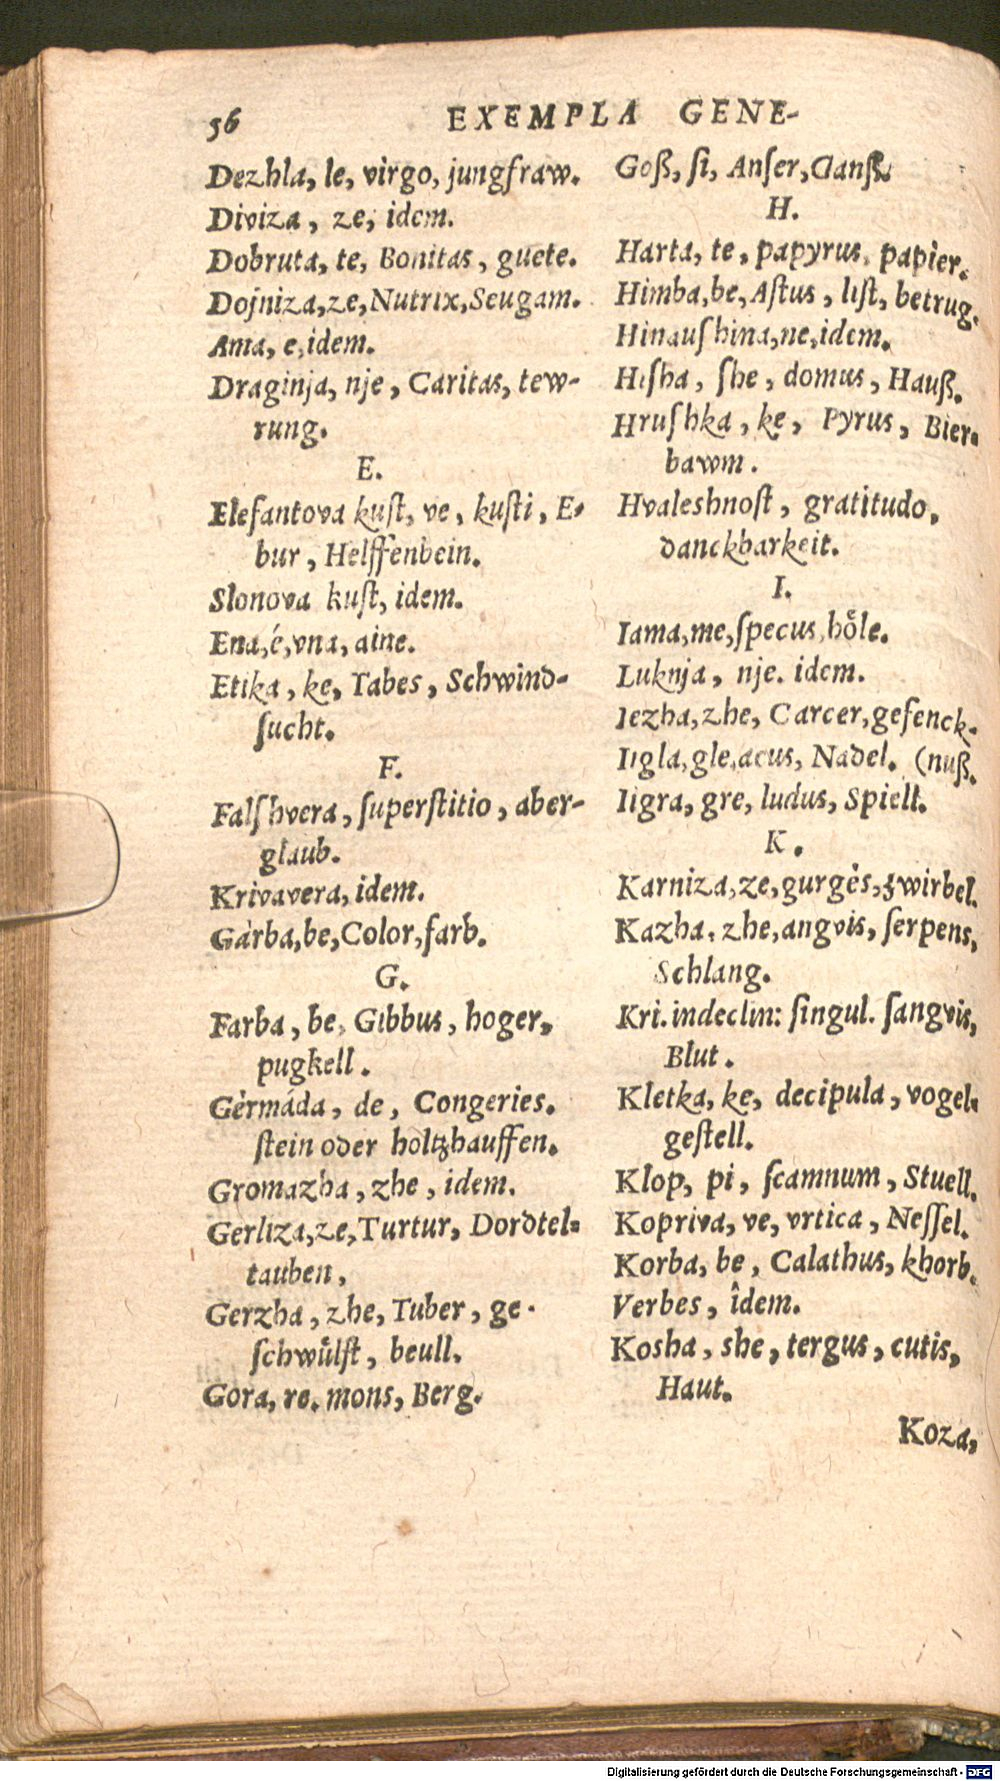 56 EXEMPLA GENE-
Dezhla, le, virgo, jungfraw.
Diviza, ze, idem.
Dobruta, te, Bonitas, guete.
Dojniza, ze, Nutrix, Seugam.
Ama, e, idem.
Draginja, nje, Caritas, tew-
rung.
E.
Elefantova kuſt, ve, kuſti, E-
bur, Helffenbein.
Slonova kuſt, idem.
Ena, é, vna, aine.
Etika, ke, Tabes, Schwind-
ſucht.
F.
Falſhvera, ſuperſtitio, aber-
glaub.
Krivavera, idem.
Gàrba, be, Color, farb.
G.
Farba, be, Gibbus, hoger,
pugkell.
Gèrmáda, de, Congeries.
ſtein oder holtzhauffen.
Gromazha, zhe, idem.
Gerliza, ze, Turtur, Dordtel-
tauben,
Gerzha, zhe, Tuber, ge-
ſchwůlſt, beull.
Gora, re. mons, Berg.
Goß, ſi, Anſer, Ganß.
H.
Harta, te, papyrus, papier.
Himba, be, Aſtus, liſt, betrug.
Hinauſhina, ne, idem.
Hiſha, ſhe, domus, Hauß.
Hruſhka, ke, Pyrus, Bier-
bawm.
Hvaleshnoſt, gratitudo,
danckbarkeit.
I.
Iama, me, ſpecus, hőle.
Luknja, nje. idem.
Iezha, zhe, Carcer, gefenck-
Iigla, gle, acus, Nadel. (nuß.
Iigra, gre, ludus, Spiell.
K.
Karniza, ze, gurgès, zwirbel.
Kazha, zhe, angvis, ſerpens,
Schlang.
Kri. indeclin: ſingul. ſangvis,
Blut.
Kletka, ke, decipula, vogel-
geſtell.
Klop, pi, ſcamnum, Stuell.
Kopriva, ve, vrtica, Neſſel.
Korba, be, Calathus, khorb.
Verbes, îdem.
Kosha, she, tergus, cutis,
Haut.
Koza,
Digitalisierung gefördert durch die Deutsche Forschungsgemeinschaft - DFG